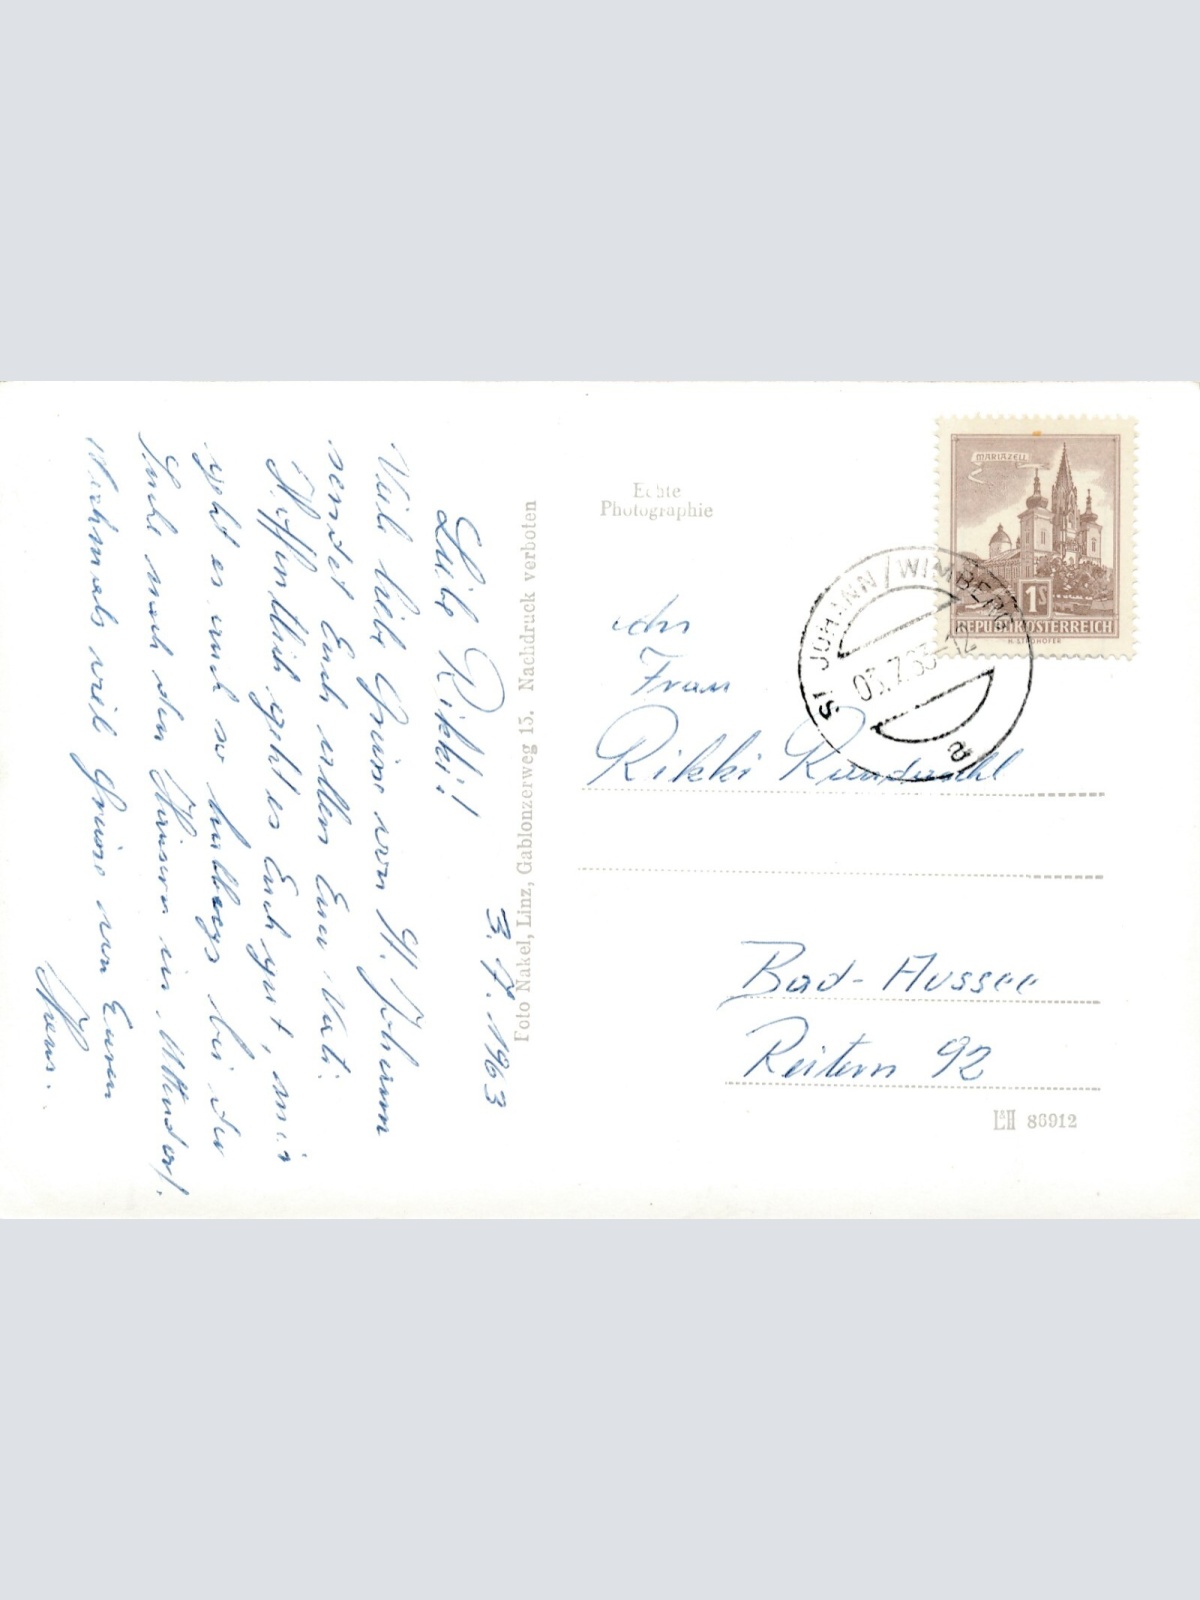 3. 7. 1963
Liebe Rikki!
Viele liebe Grüsse von St. Johann
sendet Euch allen Euer Vati.
Hoffentlich geht es Euch gut, mir
geht es auch so bei der
Suche nach den Häusern in
Nochmals viel Grüsse von Euren
Foto Nakel, Linz, Gablonzerweg 15. Nachdruck verboten
Echte
Photographie
MARIAZELL
1S
REPUBLIK ÖSTERREICH
ST. JOHANN/WIMBERG
03.7.63-12
a
An
Frau
Rikki
Bad-Aussee
Reitern 92
L&H 86912